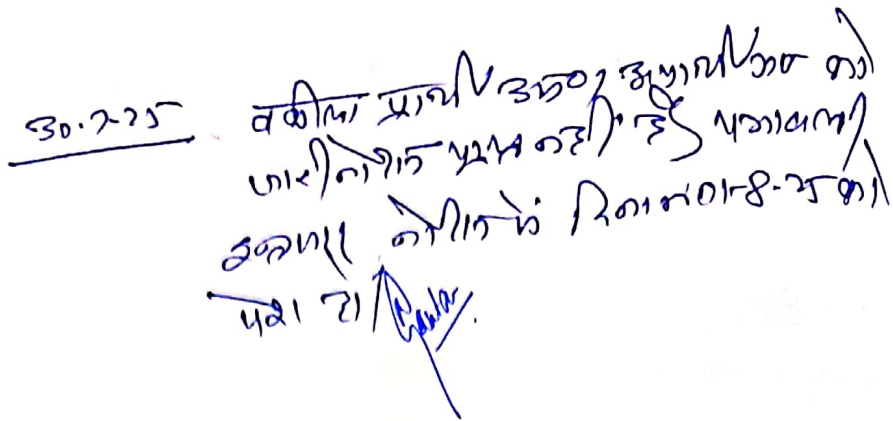 30.7.25 वकील प्रार्थी उप० अप्रार्थीगण को
जारी नोटिस प्राप्त नही हुई पत्रावली
इन्तजार नोटिस में दिनांक 01-8-25 को
पेश हो